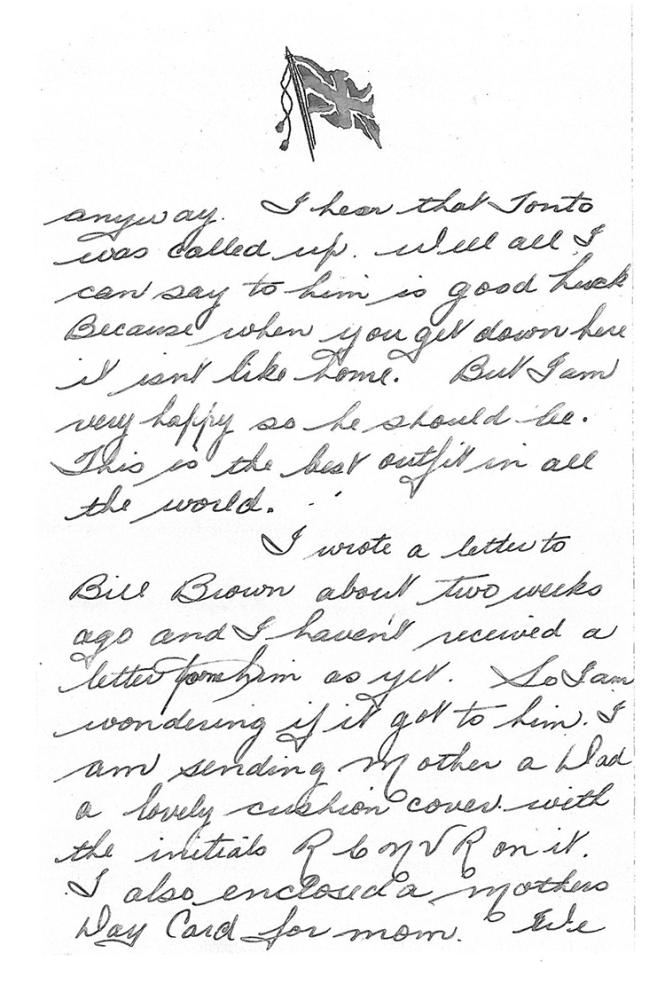 anyway. I hear that Tonto
was called up. Well all I
can say to him is good luck
Because when you get down here
it isn't like home. But I am
very happy so he should be.
This is the best outfit in all
the world.
I wrote a letter to
Bill Brown about two weeks
ago and I haven't received a
letter from him as yet. So I am
wondering if it got to him. I
am sending Mother a Dad
a lovely cushion cover with
the initials R C N V R on it.
I also enclosed a Mothers
Day Card for mom. We